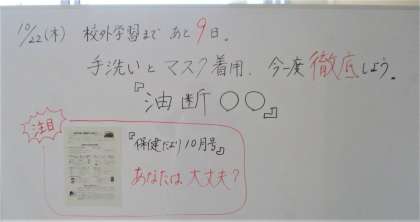 10/22(木) 校外学習まで あと9日。
手洗いとマスク着用、今一度徹底しよう。
『油断○○』
注目
『保健だより10月号』
あなたは大丈夫?